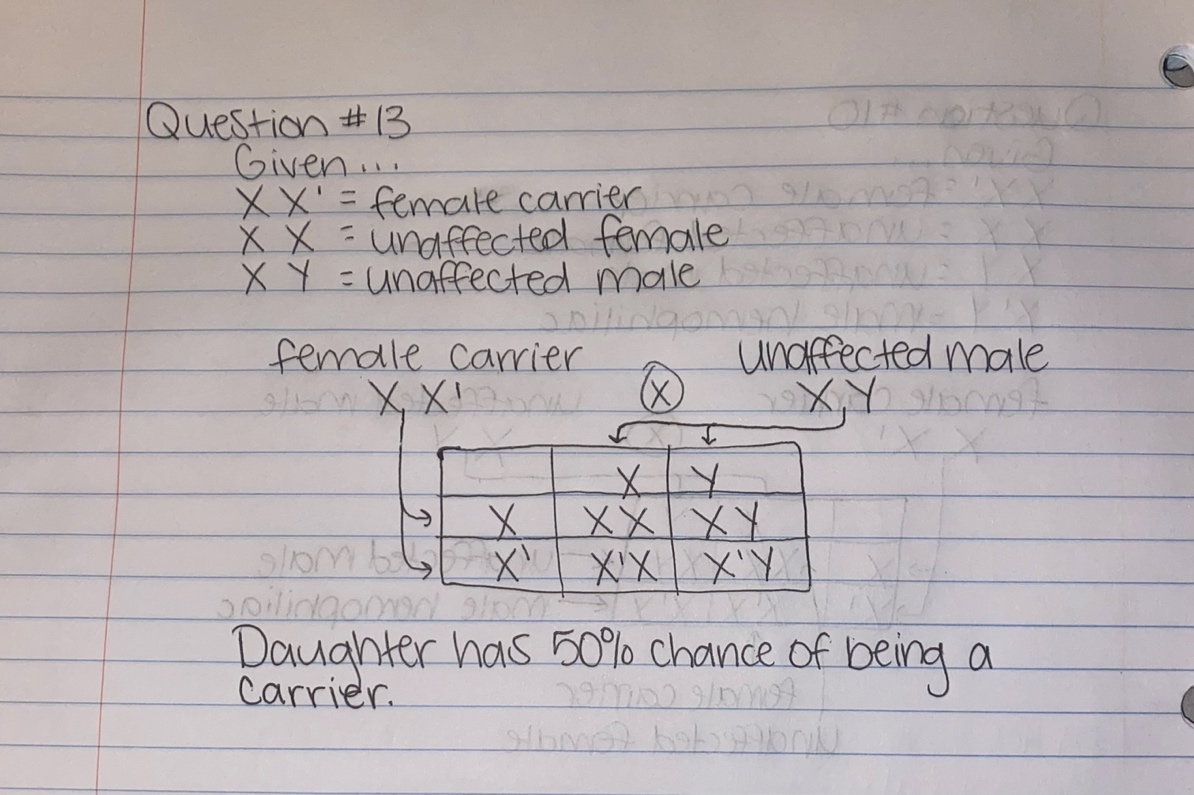 Question #13
Given...
X X' = female carrier
X X = unaffected female
X Y = unaffected male
female carrier unaffected male
X, X' X X, Y
X Y
X XX XY
X' X'X X'Y
Daughter has 50% chance of being a
carrier.